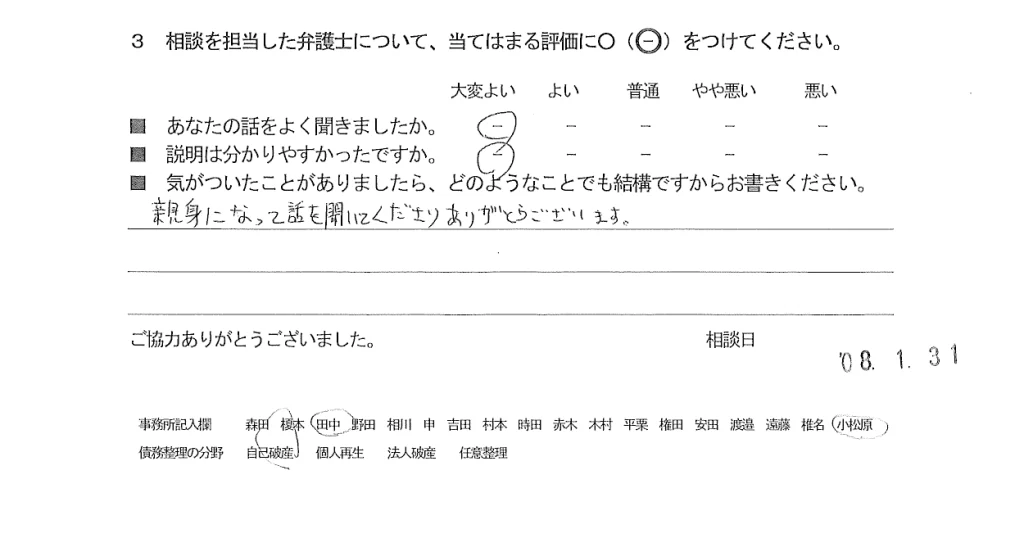 3 相談を担当した弁護士について、当てはまる評価に〇（㊀）をつけてください。
大変よい よい 普通 やや悪い 悪い
■ あなたの話をよく聞きましたか。 － － － － －
■ 説明は分かりやすかったですか。 － － － － －
■ 気がついたことがありましたら、どのようなことでも結構ですからお書きください。
親身になって話を聞いてくださりありがとうございます。
ご協力ありがとうございました。 相談日
'08. 1. 31
事務所記入欄 森田 榎木 田中 野田 相川 申 吉田 村本 時田 赤木 木村 平栗 権田 安田 渡邉 遠藤 椎名 小松原
債務整理の分野 自己破産 個人再生 法人破産 任意整理